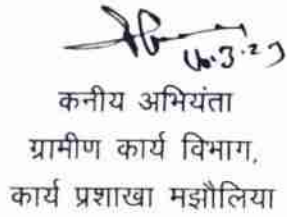 कनीय अभियंता
ग्रामीण कार्य विभाग,
कार्य प्रशाखा मझौलिया